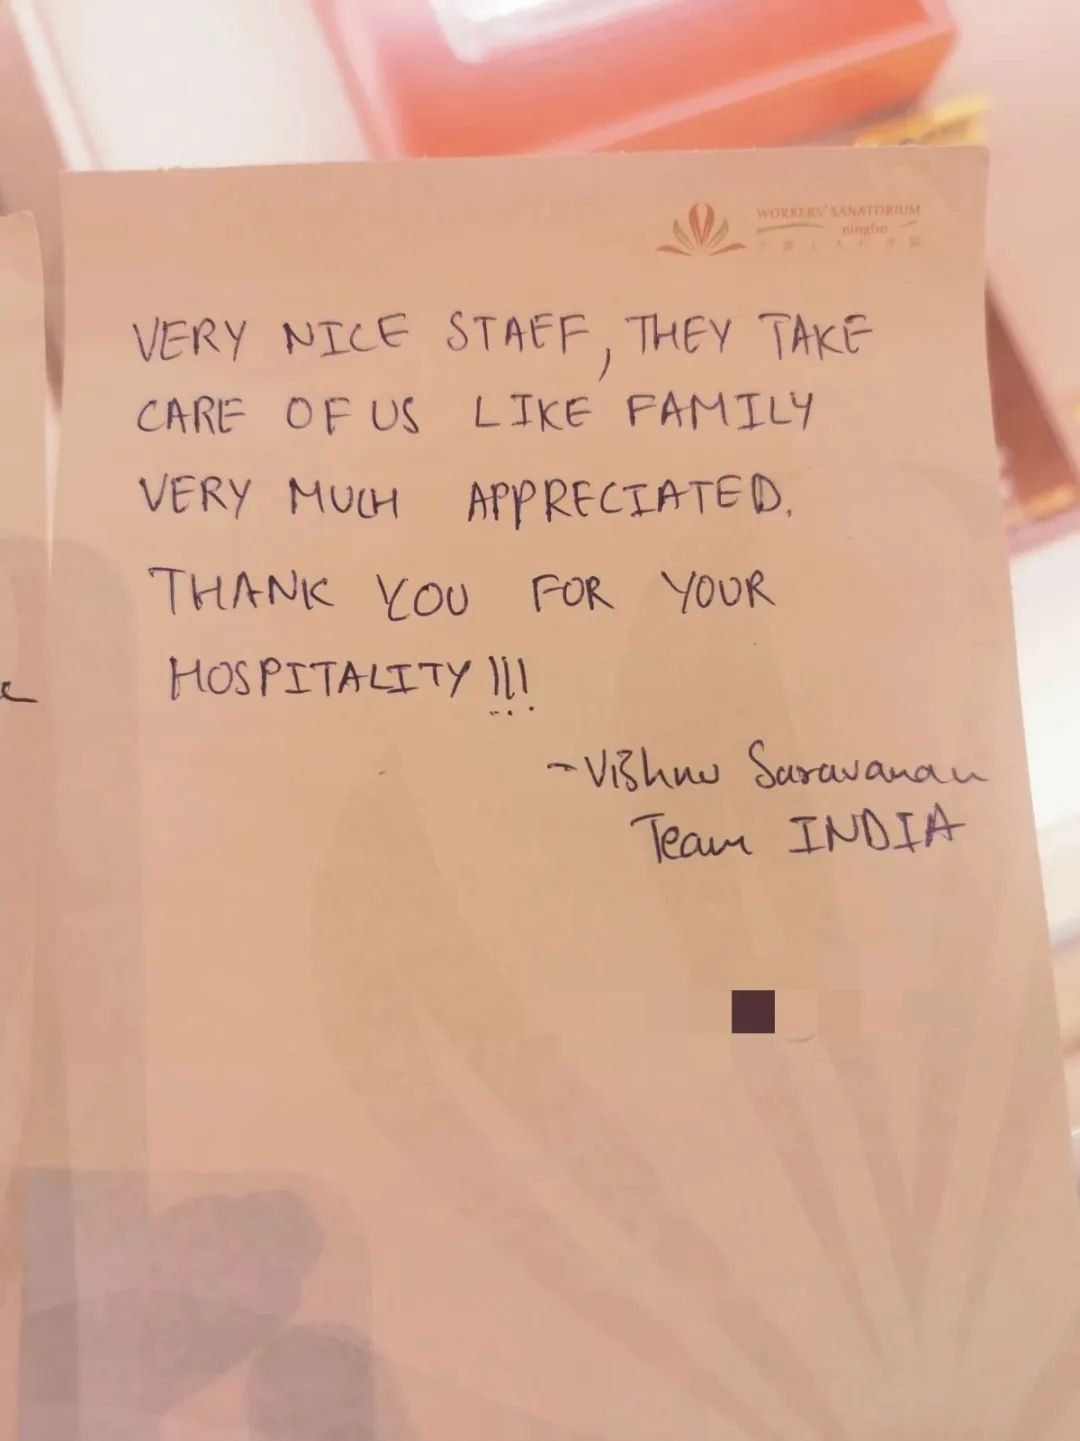 WORKERS' SANATORIUM
ningbo
VERY NICE STAFF, THEY TAKE
CARE OF US LIKE FAMILY
VERY MUCH APPRECIATED.
THANK YOU FOR YOUR
HOSPITALITY !!!
- Vishnu Saravanan
Team INDIA